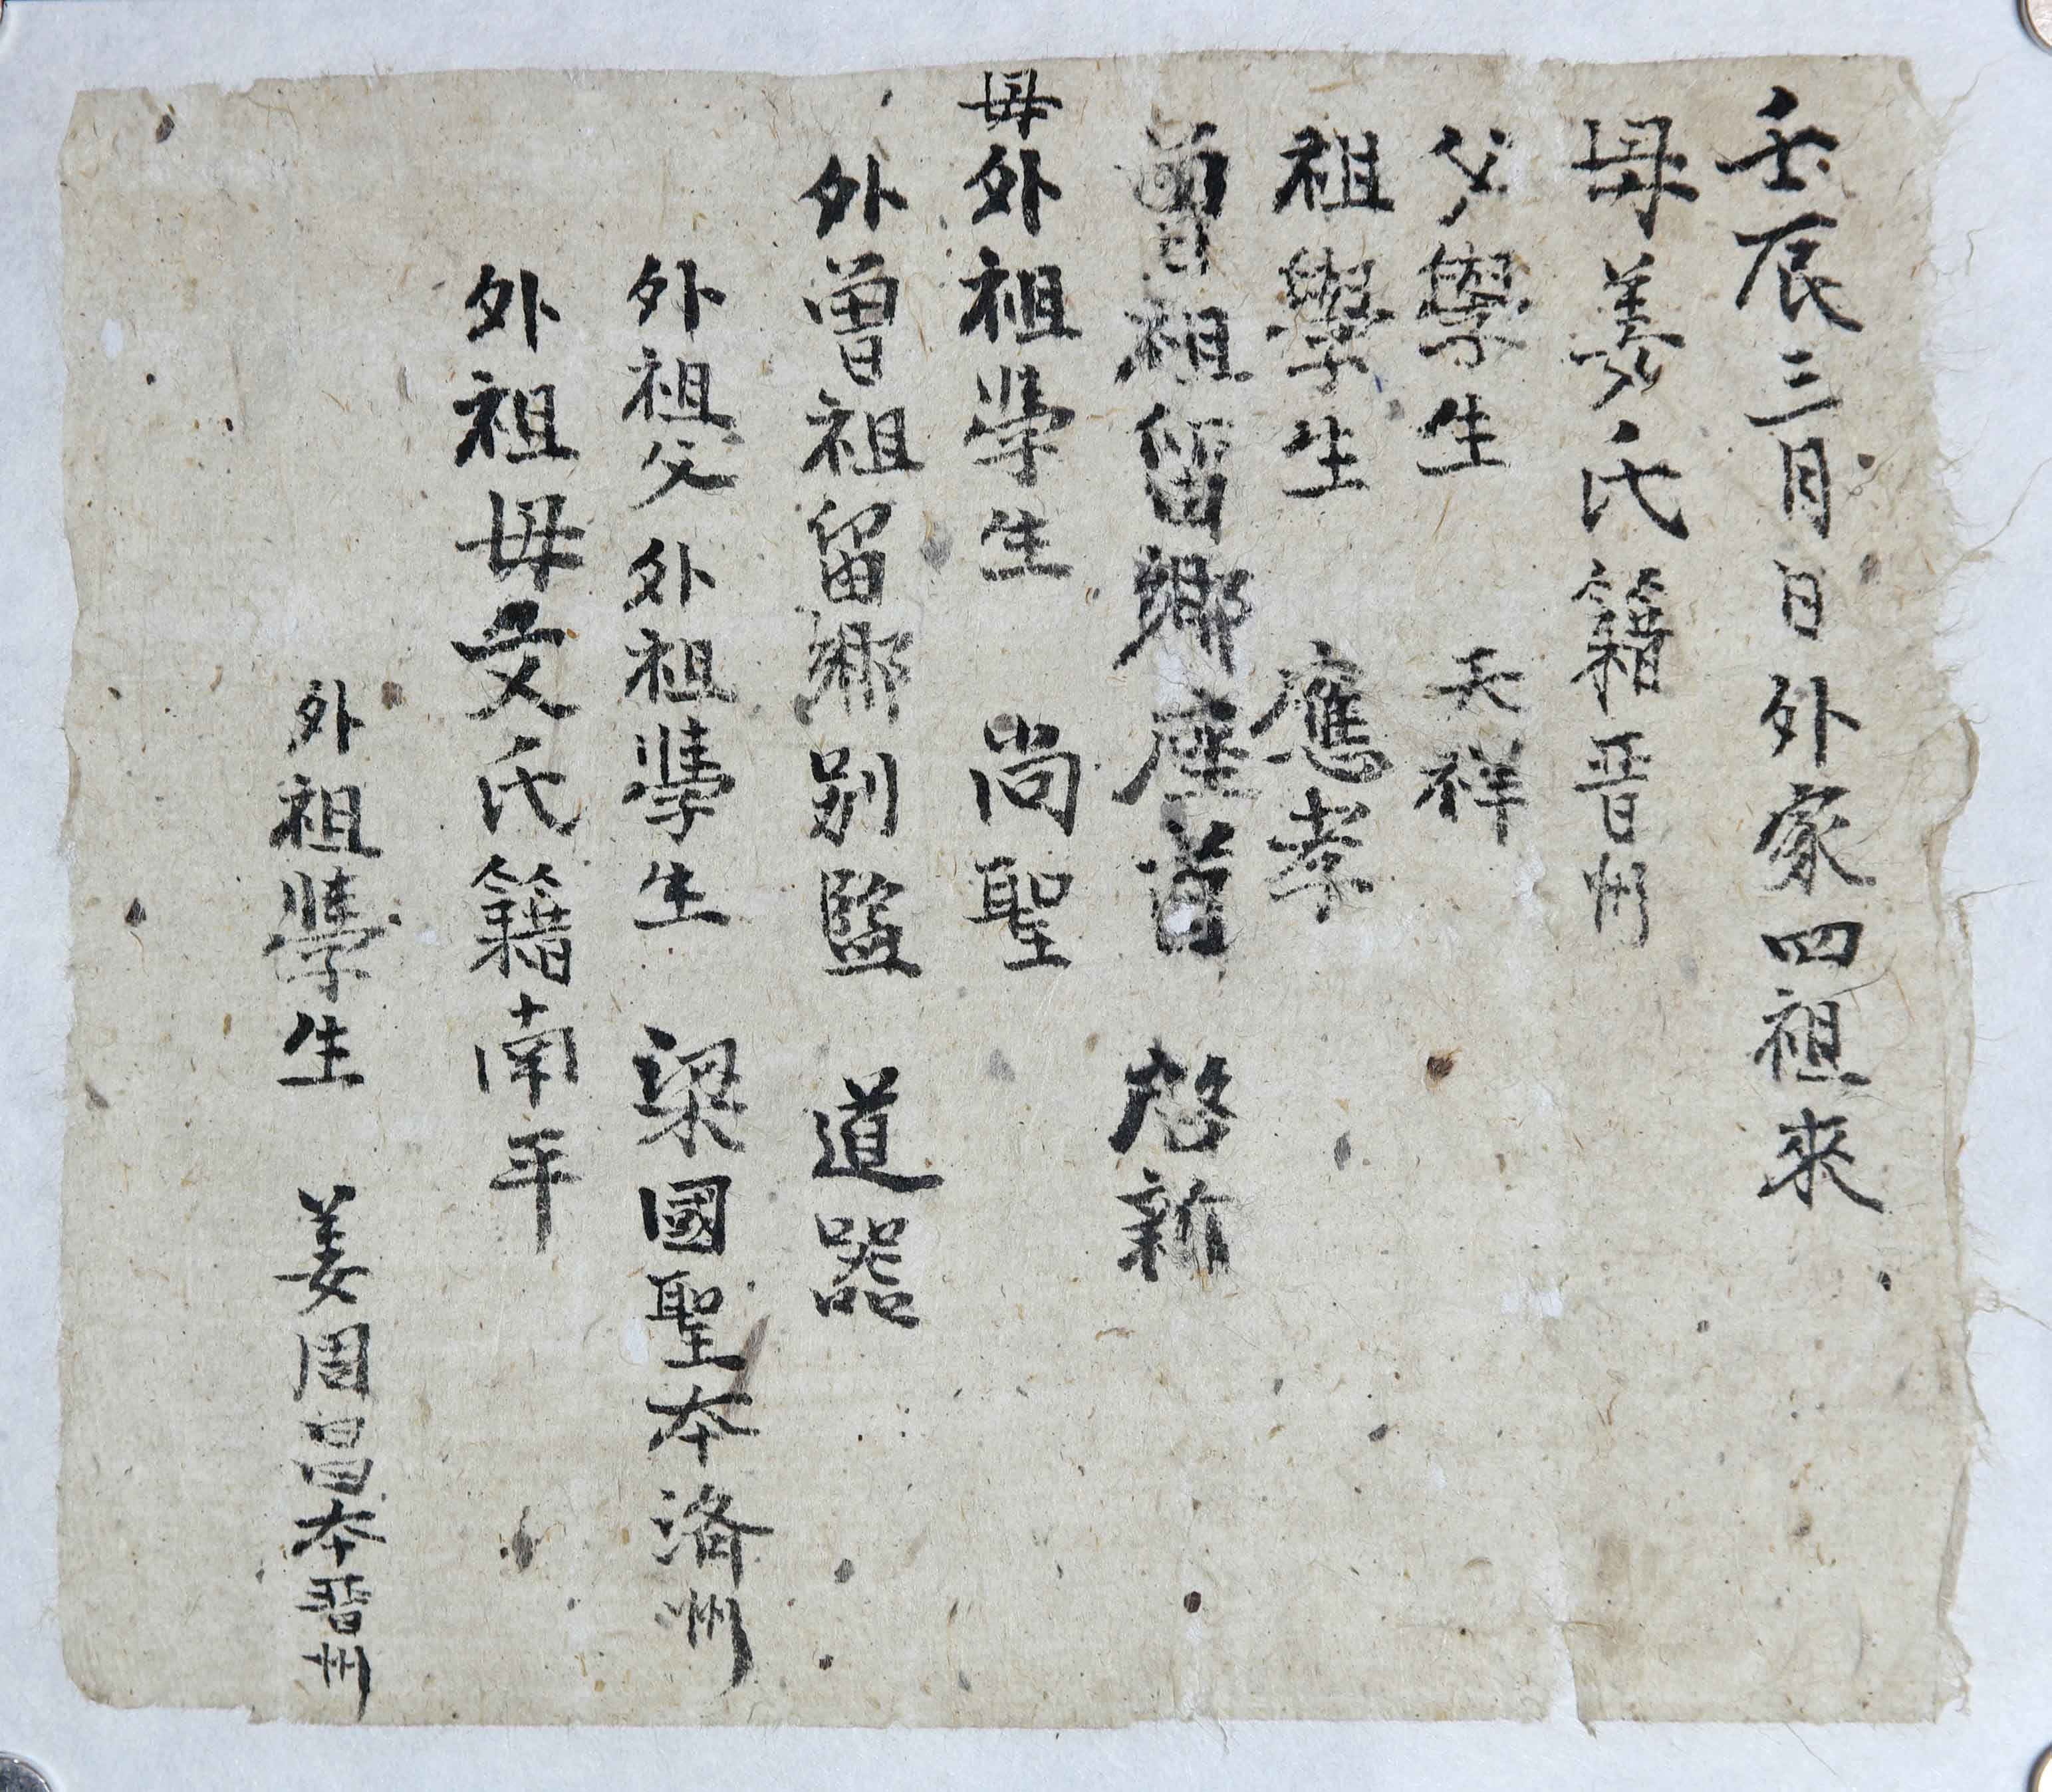 壬辰三月日外家四祖來
母姜氏籍晋州
父學生 天祥
祖學生 應孝
曾祖留鄕座首 啓新
母外祖學生 尚聖
外曾祖留鄕別監 道器
外祖父外祖學生 梁國聖本濟州
外祖母文氏籍南平
外祖學生 姜周昌本晋州